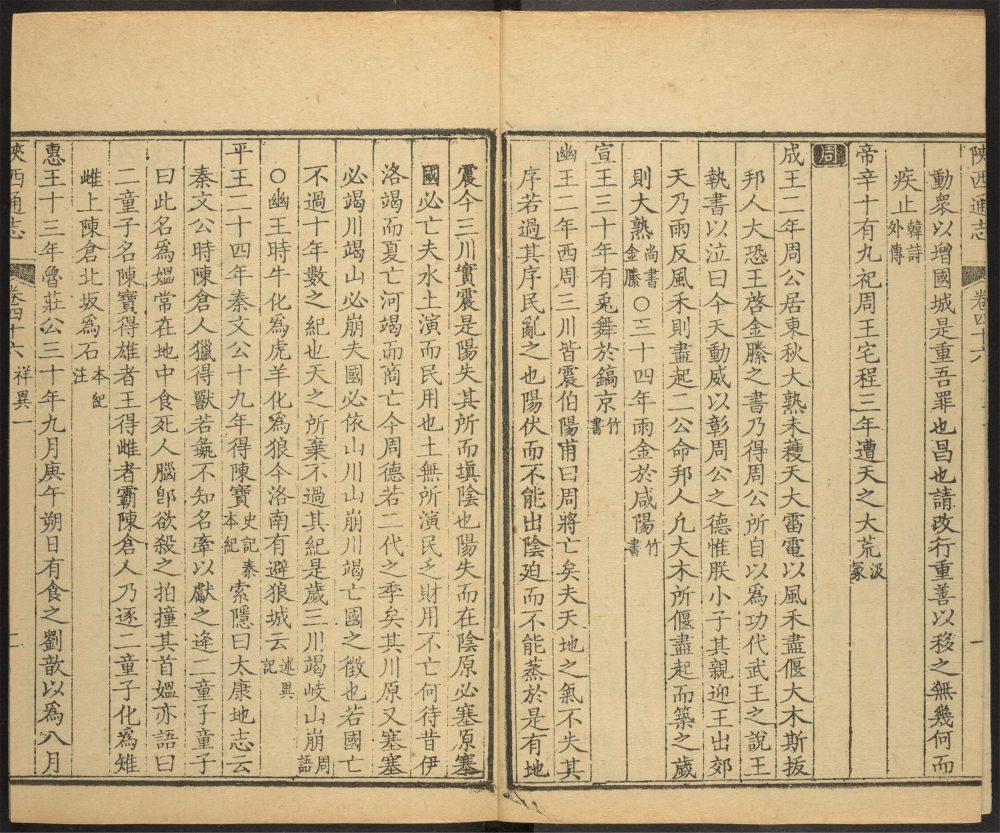 陝西通志 卷四十六
動衆以增國城是重吾罪也昌也請改行重善以移之無幾何而
疾止韓詩外傳
帝辛十有九祀周王宅程三年遭天之大荒汲冢
周
成王二年周公居東秋大熟未穫天大雷電以風禾盡偃大木斯拔
邦人大恐王啓金縢之書乃得周公所自以爲功代武王之說王
執書以泣曰今天動威以彰周公之德惟朕小子其親迎王出郊
天乃雨反風禾則盡起二公命邦人凡大木所偃盡起而築之歲
則大熟尚書金縢○三十四年雨金於咸陽竹書
宣王三十年有兎舞於鎬京竹書
幽王二年西周三川皆震伯陽甫曰周將亡矣夫天地之氣不失其
序若過其序民亂之也陽伏而不能出陰廹而不能蒸於是有地
震今三川實震是陽失其所而塡陰也陽失而在陰原必塞原塞
國必亡夫水土演而民用也土無所演民乏財用不亡何待昔伊
洛竭而夏亡河竭而商亡今周德若二代之季矣其川原又塞塞
必竭川竭山必崩夫國必依山川山崩川竭亡國之徵也若國亡
不過十年數之紀也天之所棄不過其紀是歲三川竭岐山崩周語
○幽王時牛化爲虎羊化爲狼今洛南有避狼城云述異記
平王二十四年秦文公十九年得陳寶史記秦本紀索隱曰太康地志云
秦文公時陳倉人獵得獸若彘不知名牽以獻之逢二童子童子
曰此名爲媼常在地中食死人腦卽欲殺之拍撞其首媼亦語曰
二童子名陳寶得雄者王得雌者霸陳倉人乃逐二童子化爲雉
雌上陳倉北坂爲石本紀注
惠王十三年魯莊公三十年九月庚午朔日有食之劉歆以爲八月
陝西通志 卷四十六 祥異一